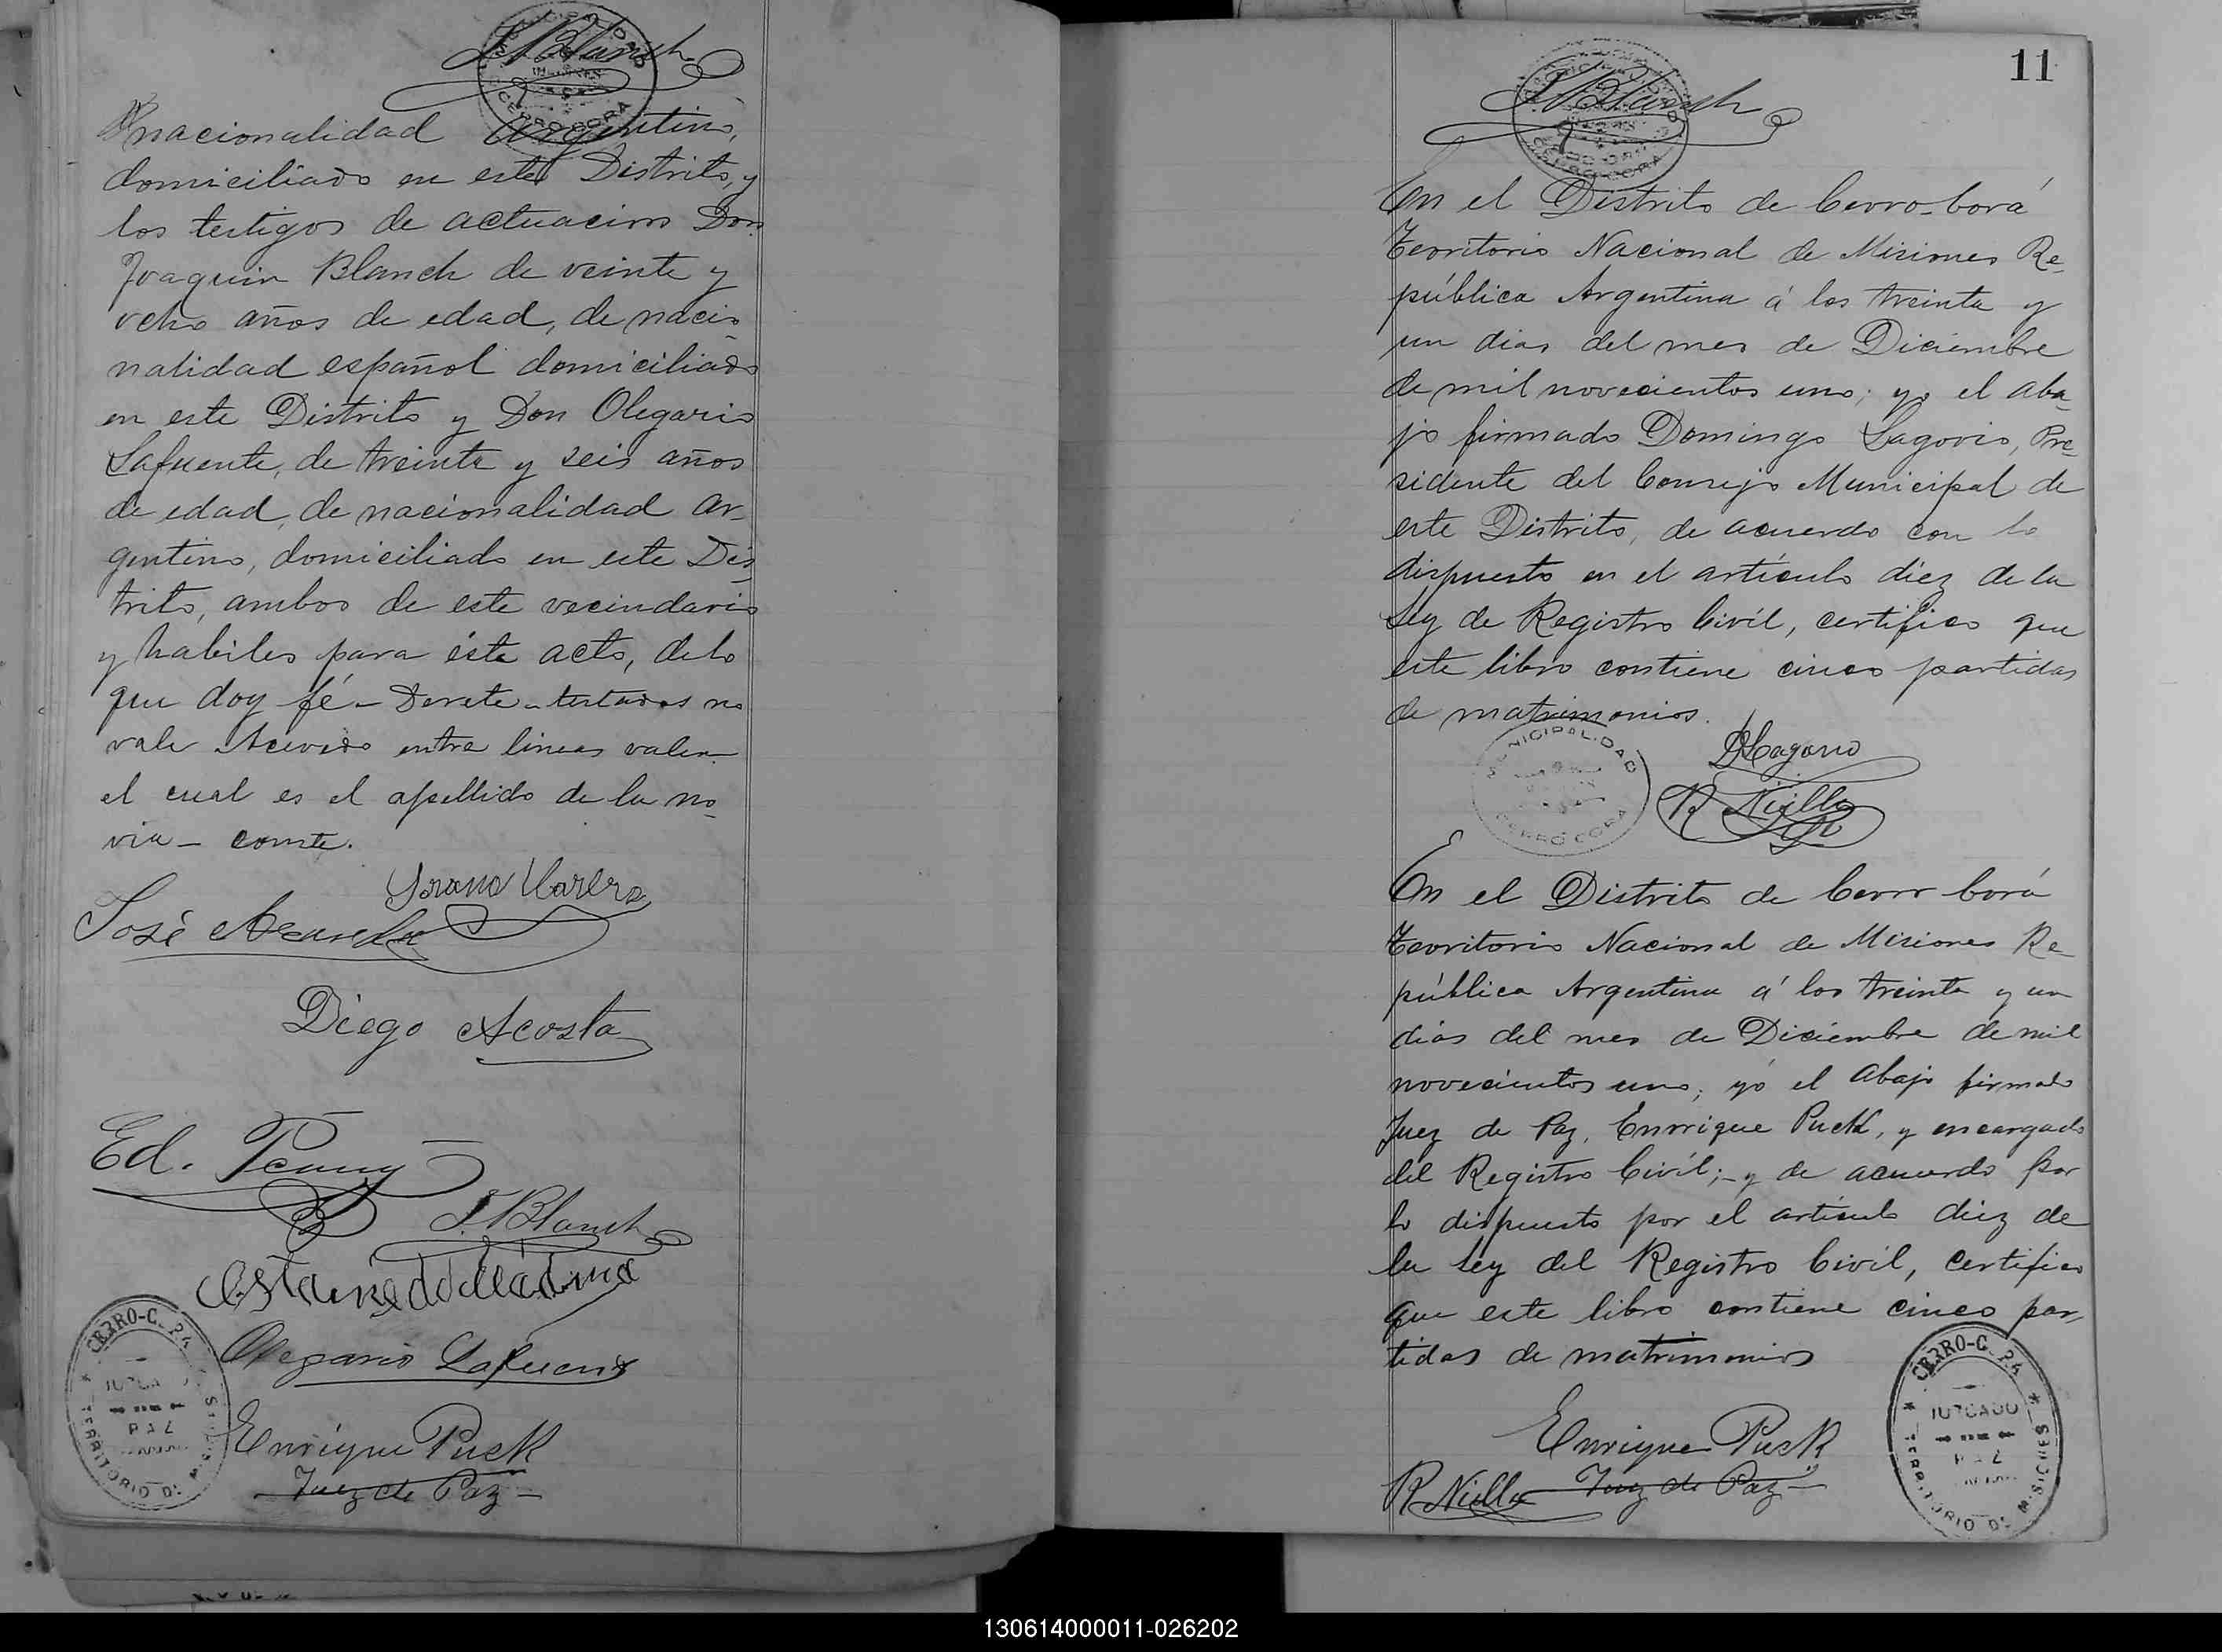 J. Blanch
nacionalidad Argentino,
domiciliado en este Distrito, y
los testigos de actuacion Don
Joaquin Blanch de veinte y
ocho años de edad, de nacio
nalidad español domiciliado
en este Distrito y Don Olegario
Lafuente, de treinta y seis años
de edad, de nacionalidad Ar-
gentino, domiciliado en este Dis-
trito, ambos de este vecindario
y habiles para éste acto, de lo
que doy fé – testados no
vale Acevedo entre lineas valen
el cual es el apellido de la no-
via – conste.
José
Diego Acosta
Ed.
J. Blanch
Olegario Lafuente
CERRO-CORA
JUZGADO
DE
PAZ
TERRITORIO DE MISIONES
Enrique Puck
Juez de Paz –
11
J. Blanch
CERRO CORA
En el Distrito de Cerro-Corá
Territorio Nacional de Misiones Re-
pública Argentina á los treinta y
un dias del mes de Diciembre
de mil novecientos uno; yo el aba-
jo firmado Domingo Lagorio, Pre-
sidente del Consejo Municipal de
este Distrito, de acuerdo con lo
dispuesto en el artículo diez de la
Ley de Registro Civíl, certifico que
este libro contiene cinco partidas
de matrimonios.
MUNICIPALIDAD
CERRO CORA
D Lagorio
En el Distrito de Cerro Corá
Territorio Nacional de Misiones Re-
pública Argentina á los treinta y un
días del mes de Diciembre de mil
novecientos uno; yó el abajo firmado
Juez de Paz, Enrrique Puck, y encargado
del Registro Civíl; – y de acuerdo por
lo dispuesto por el artículo diez de
la Ley del Registro Civíl, certifico
que este libro contiene cinco par-
tidas de matrimonios
Enrique Puck
Juez de Paz –
CERRO-CORA
JUZGADO
DE
PAZ
TERRITORIO DE MISIONES
130614000011-026202